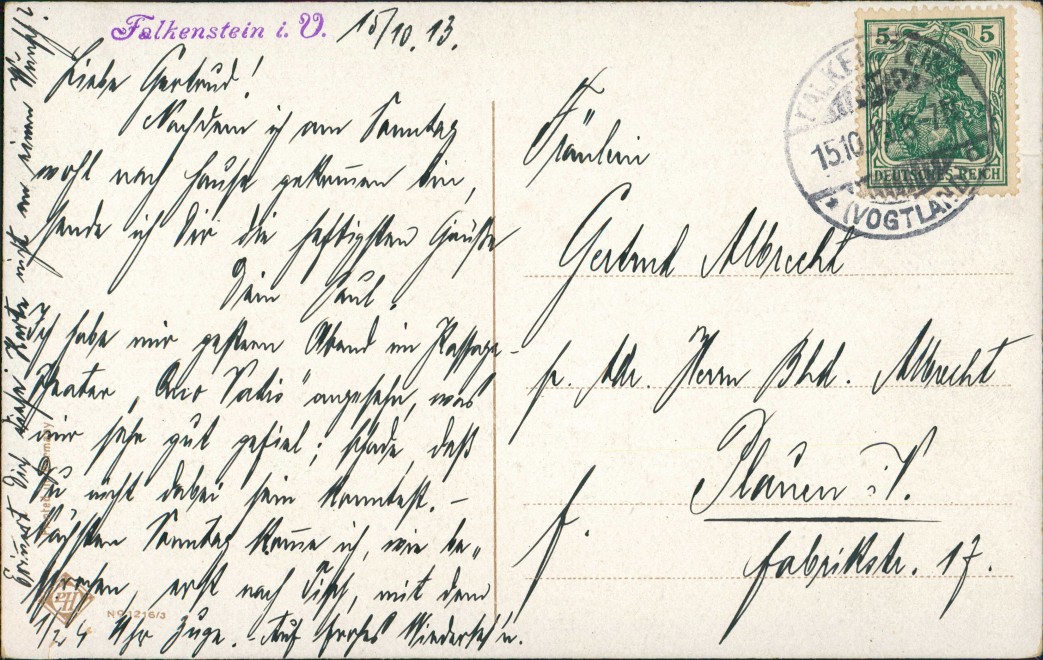 Falkenstein i. V. 15/10.13.
Liebe Gertrud!
Nachdem ich am Sonntag
wohl nach Hause gekommen bin,
sende ich Dir die heftigsten Grüße
Dein Paul.
Ich habe mir gestern Abend im Passage-
Theater „Quo Vadis" angesehen, was
mir sehr gut gefiel; schade, daß
Du nicht dabei sein konntest. –
Nächsten Sonntag komme ich, wie be-
sprochen, erst nach Tisch, mit dem
1/2 4 Uhr Zuge. Auf frohes Wiederseh'n.
Erinnert Dich diese Karte nicht an einen Wunsch?
Fräulein
Gertrud Albrecht
p. Adr. Herrn Bhd. Albrecht
Plauen i. V.
Fabrikstr. 17.
f.
5 5
DEUTSCHES REICH
FALKENSTEIN
15.10.13
(VOGTLAND)
PH
No 1216/3